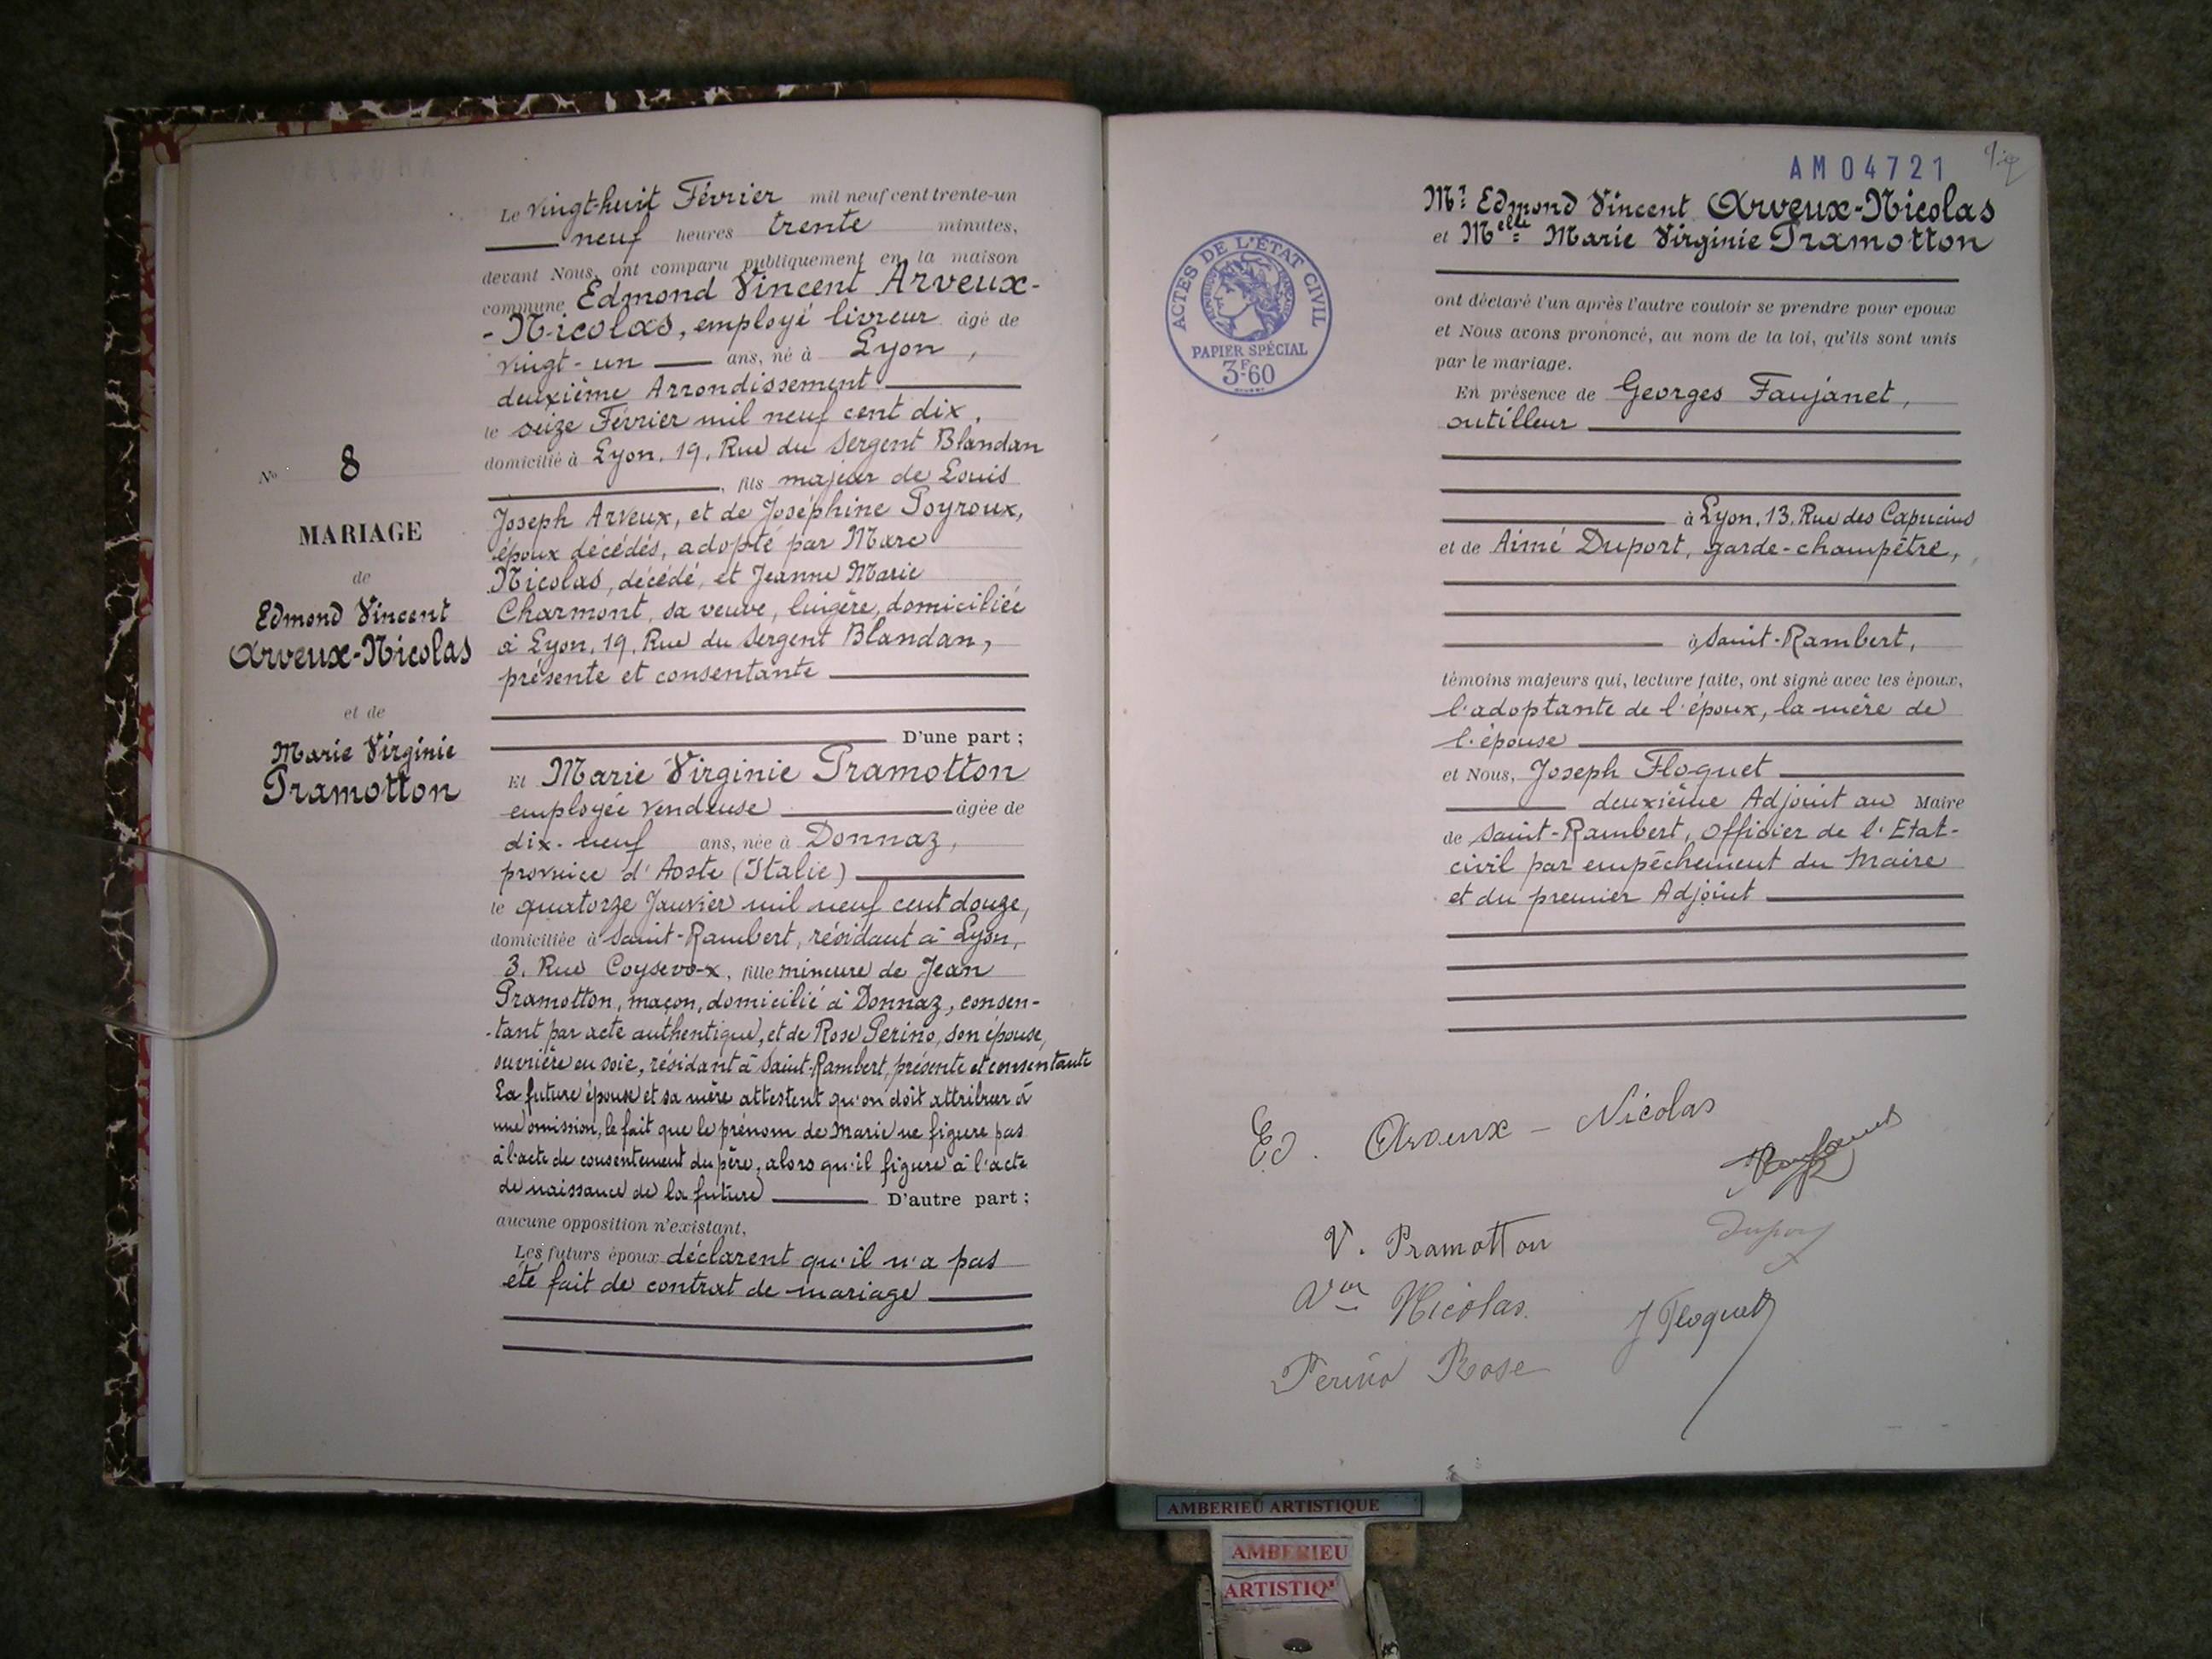 Le vingt-huit Février mil neuf cent trente-un
neuf heures trente minutes,
devant Nous, ont comparu publiquement en la maison
commune Edmond Vincent Arveux-
-Nicolas, employé livreur âgé de
vingt-un ans, né à Lyon,
deuxième Arrondissement
le seize Février mil neuf cent dix,
domicilié à Lyon, 19, Rue du Sergent Blandan
, fils majeur de Louis
Joseph Arveux, et de Joséphine Poyroux,
époux décédés, adopté par Marc
Nicolas, décédé, et Jeanne Marie
Charmont, sa veuve, lingère, domiciliée
à Lyon, 19, Rue du Sergent Blandan,
présente et consentante
D'une part ;
Et Marie Virginie Pramotton
employée vendeuse âgée de
dix-neuf ans, née à Donnaz,
province d'Aoste (Italie)
le quatorze Janvier mil neuf cent douze,
domiciliée à Saint-Rambert, résidant à Lyon,
3, Rue Coysevox, fille mineure de Jean
Pramotton, maçon, domicilié à Donnaz, consen-
-tant par acte authentique, et de Rose Perino, son épouse,
ouvrière en soie, résidant à Saint-Rambert, présente et consentante
La future épouse et sa mère attestent qu'on doit attribuer à
une omission, le fait que le prénom de Marie ne figure pas
à l'acte de consentement du père, alors qu'il figure à l'acte
de naissance de la future D'autre part ;
aucune opposition n'existant,
Les futurs époux déclarent qu'il n'a pas
été fait de contrat de mariage
No 8
MARIAGE
de
Edmond Vincent
Arveux-Nicolas
et de
Marie Virginie
Pramotton
AM04721
ACTES DE L'ÉTAT CIVIL
PAPIER SPÉCIAL
3F.60
Mr Edmond Vincent Arveux-Nicolas
et Melle Marie Virginie Pramotton
ont déclaré l'un après l'autre vouloir se prendre pour époux
et Nous avons prononcé, au nom de la loi, qu'ils sont unis
par le mariage.
En présence de Georges Faujanet,
outilleur
à Lyon, 13, Rue des Capucins
et de Aimé Duport, garde-champêtre,
à Saint-Rambert,
témoins majeurs qui, lecture faite, ont signé avec les époux,
l'adoptante de l'époux, la mère de
l'épouse
et Nous, Joseph Floquet
deuxième Adjoint au Maire
de Saint-Rambert, Officier de l'Etat-
civil par empêchement du Maire
et du premier Adjoint
Ed. Arveux - Nicolas
Duport
V. Pramotton
Vve Nicolas.
J Floquet
Perino Rose
AMBERIEU ARTISTIQUE
AMBERIEU
ARTISTIQ